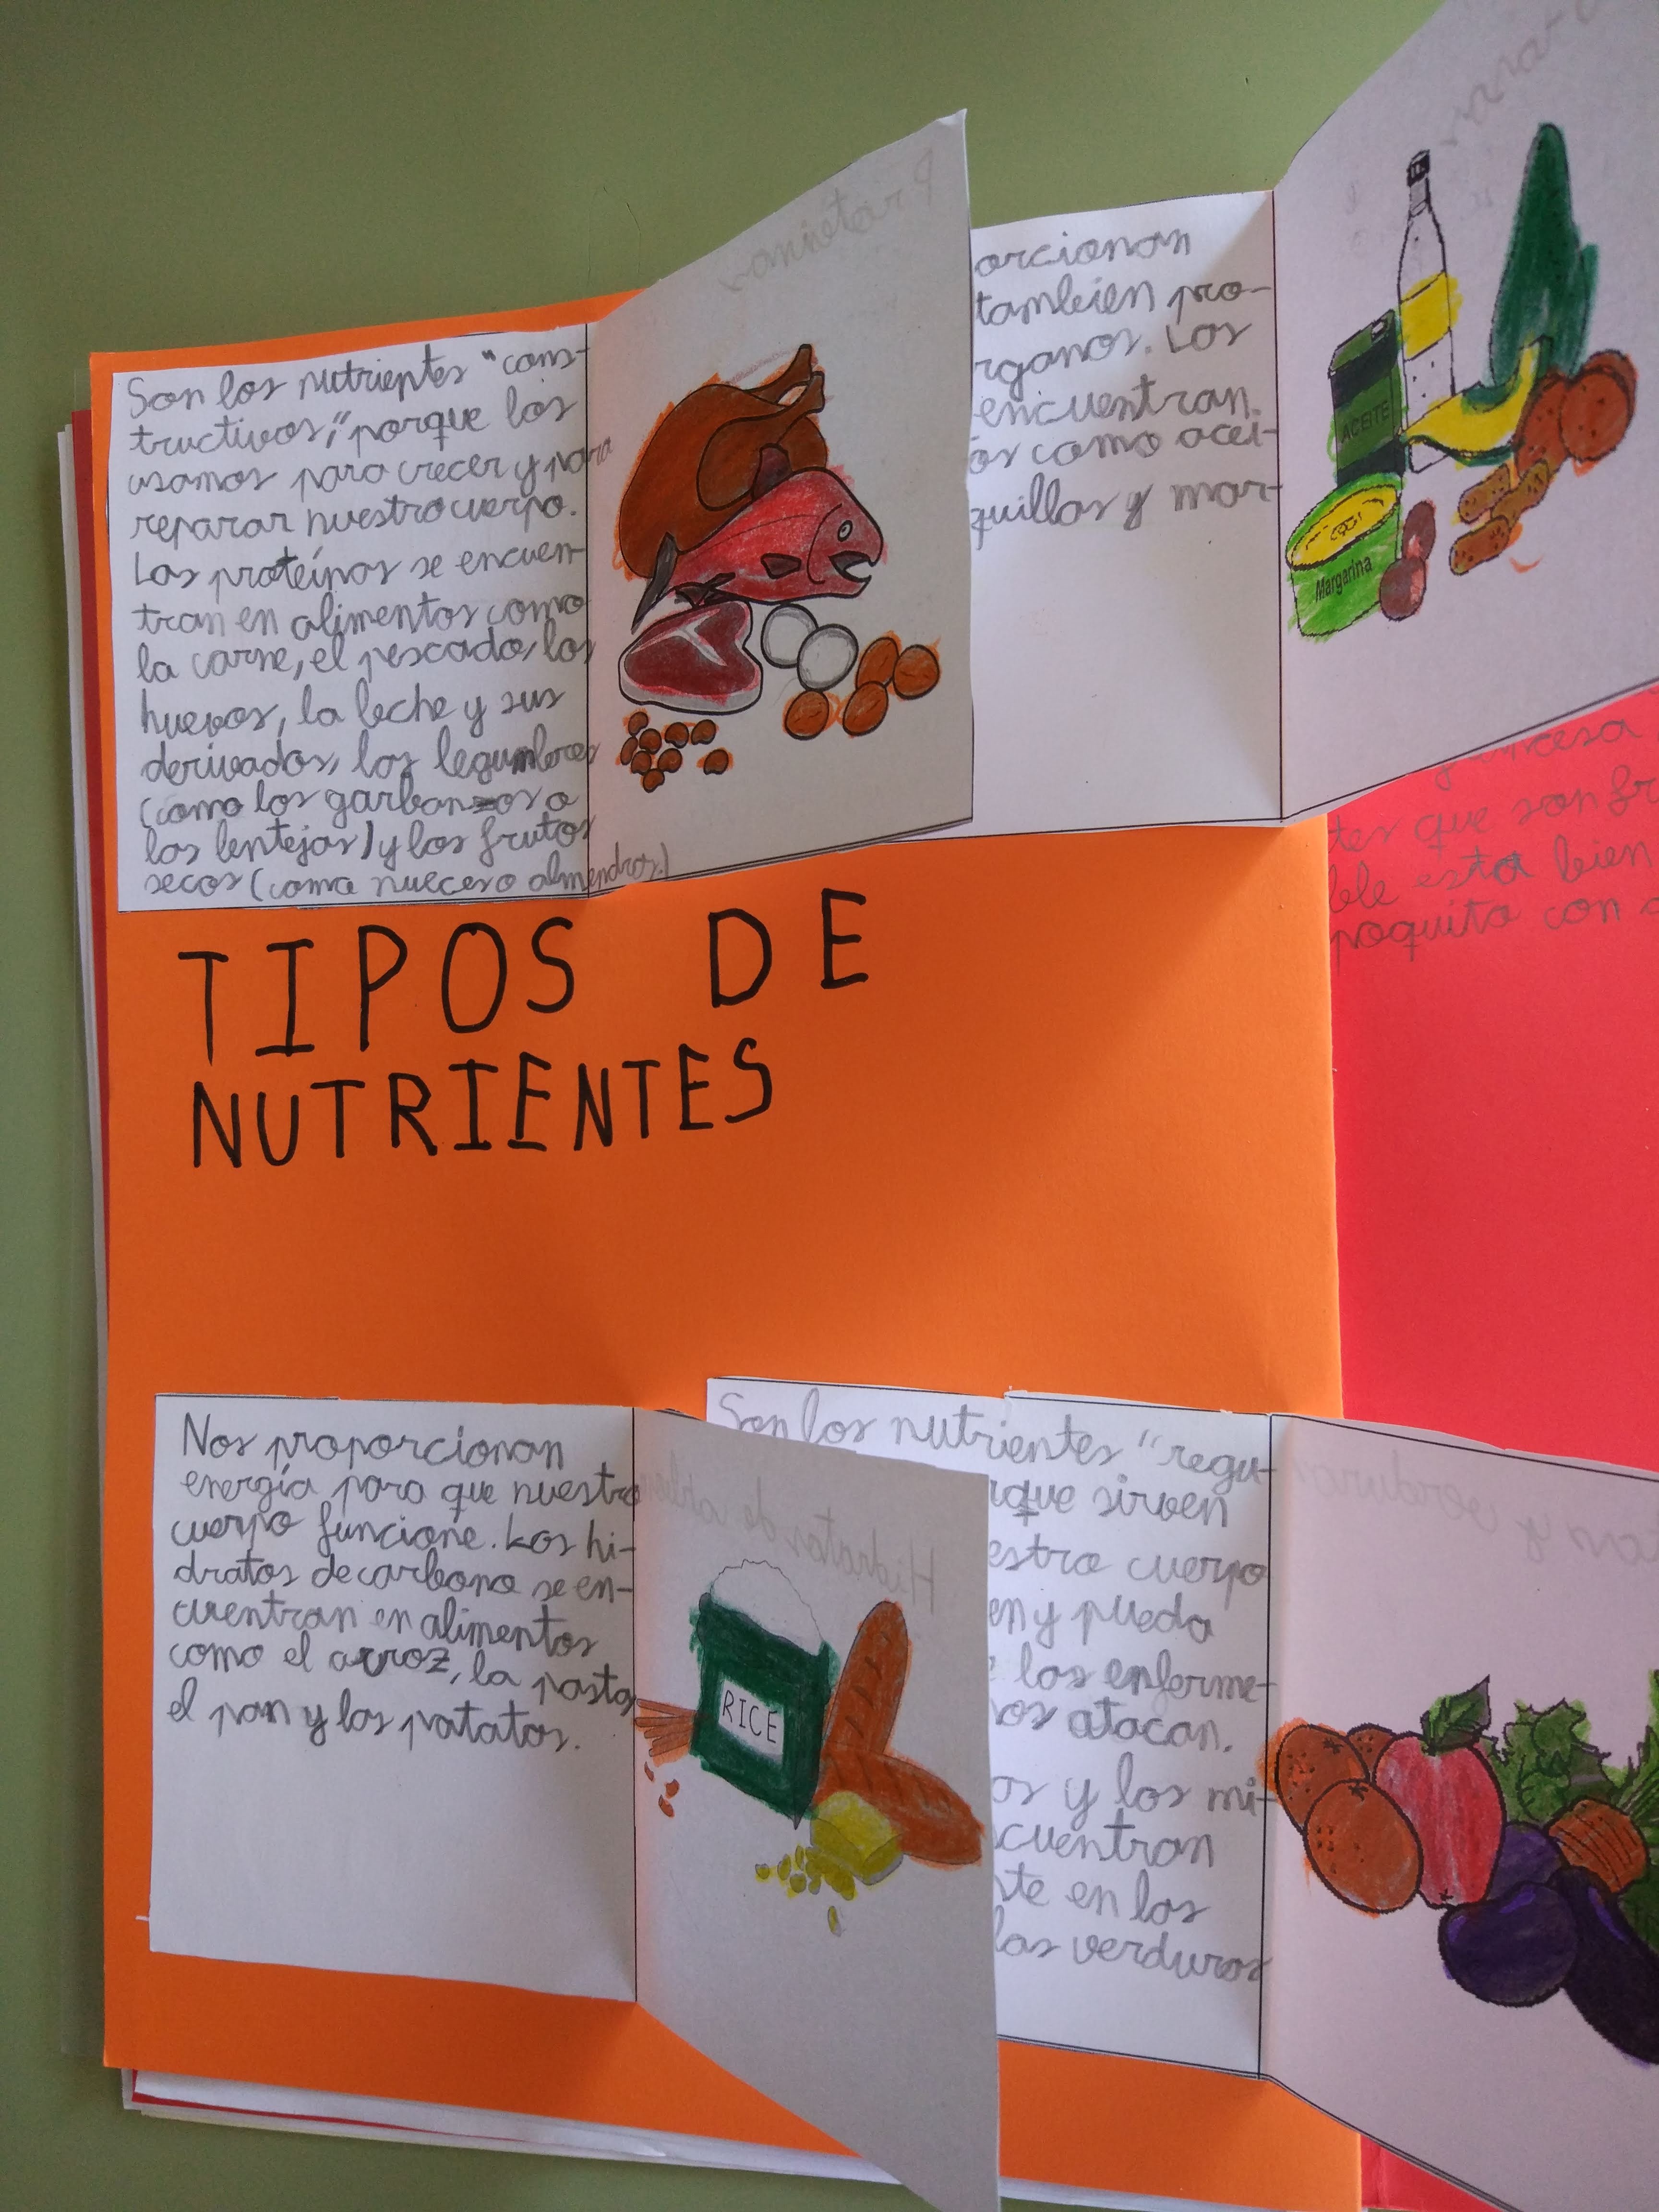 Son los nutrientes "cons-
tructivos", porque los
usamos para crecer y para
reparar nuestro cuerpo.
Las proteínas se encuen-
tran en alimentos como
la carne, el pescado, los
huevos, la leche y sus
derivados, las legumbres
(como los garbanzos o
las lentejas) y los frutos
secos (como nueces o almendras.)
orcionan
tambien pro-
rganos. Las
encuentran
os como acei-
quillas y mar-
ACEITE
Margarina
TIPOS DE
NUTRIENTES
tes que son fr
ble esta bien
poquito con
Nos proporcionan
energía para que nuestro
cuerpo funcione. Los hi-
dratos de carbono se en-
cuentran en alimentos
como el arroz, la pasta,
el pan y las patatas.
Hidratos de
RICE
Son los nutrientes "regu-
rque sirven
estro cuerpo
en y pueda
las enferme-
nos atacan.
as y los mi-
cuentran
nte en las
las verduras
y verduras